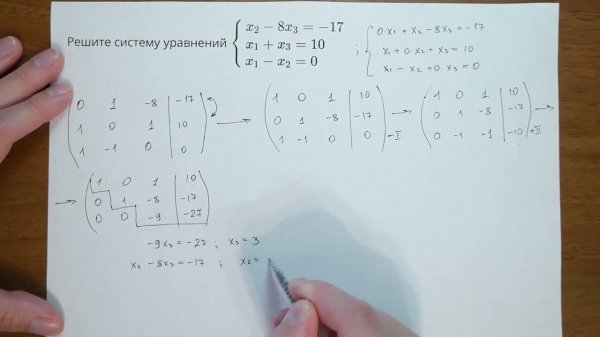 Решите систему уравнений { x₂ − 8x₃ = −17
x₁ + x₃ = 10
x₁ − x₂ = 0
; { 0·x₁ + x₂ − 8x₃ = −17
x₁ + 0·x₂ + x₃ = 10
x₁ − x₂ + 0·x₃ = 0
( 0 1 -8 | -17
1 0 1 | 10
1 -1 0 | 0 ) →
( 1 0 1 | 10
0 1 -8 | -17
1 -1 0 | 0 ) -I →
( 1 0 1 | 10
0 1 -8 | -17
0 -1 -1 | -10 ) +II →
→ ( 1 0 1 | 10
0 1 -8 | -17
0 0 -9 | -27 )
-9x₃ = -27 ; x₃ = 3
x₂ - 8x₃ = -17 ; x₂ =